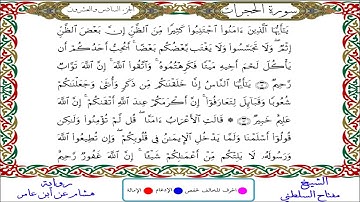 سورة الحجرات الجزء السادس والعشرون
يَٰٓأَيُّهَا ٱلَّذِينَ ءَامَنُوا۟ ٱجْتَنِبُوا۟ كَثِيرًا مِّنَ ٱلظَّنِّ إِنَّ بَعْضَ ٱلظَّنِّ
إِثْمٌ وَلَا تَجَسَّسُوا۟ وَلَا يَغْتَب بَّعْضُكُم بَعْضًا أَيُحِبُّ أَحَدُكُمْ أَن
يَأْكُلَ لَحْمَ أَخِيهِ مَيْتًا فَكَرِهْتُمُوهُ وَٱتَّقُوا۟ ٱللَّهَ إِنَّ ٱللَّهَ تَوَّابٌ
رَّحِيمٌ يَٰٓأَيُّهَا ٱلنَّاسُ إِنَّا خَلَقْنَٰكُم مِّن ذَكَرٍ وَأُنثَىٰ وَجَعَلْنَٰكُمْ
شُعُوبًا وَقَبَآئِلَ لِتَعَارَفُوٓا۟ إِنَّ أَكْرَمَكُمْ عِندَ ٱللَّهِ أَتْقَىٰكُمْ إِنَّ ٱللَّهَ
عَلِيمٌ خَبِيرٌ ۞ قَالَتِ ٱلْأَعْرَابُ ءَامَنَّا قُل لَّمْ تُؤْمِنُوا۟ وَلَٰكِن
قُولُوٓا۟ أَسْلَمْنَا وَلَمَّا يَدْخُلِ ٱلْإِيمَٰنُ فِى قُلُوبِكُمْ وَإِن تُطِيعُوا۟ ٱللَّهَ
وَرَسُولَهُۥ لَا يَلِتْكُم مِّنْ أَعْمَٰلِكُمْ شَيْـًٔا إِنَّ ٱللَّهَ غَفُورٌ رَّحِيمٌ
الشيخ مفتاح السلطني
الحرف المخالف لحفص الإدغام الإمالة
رواية هشام عن ابن عامر